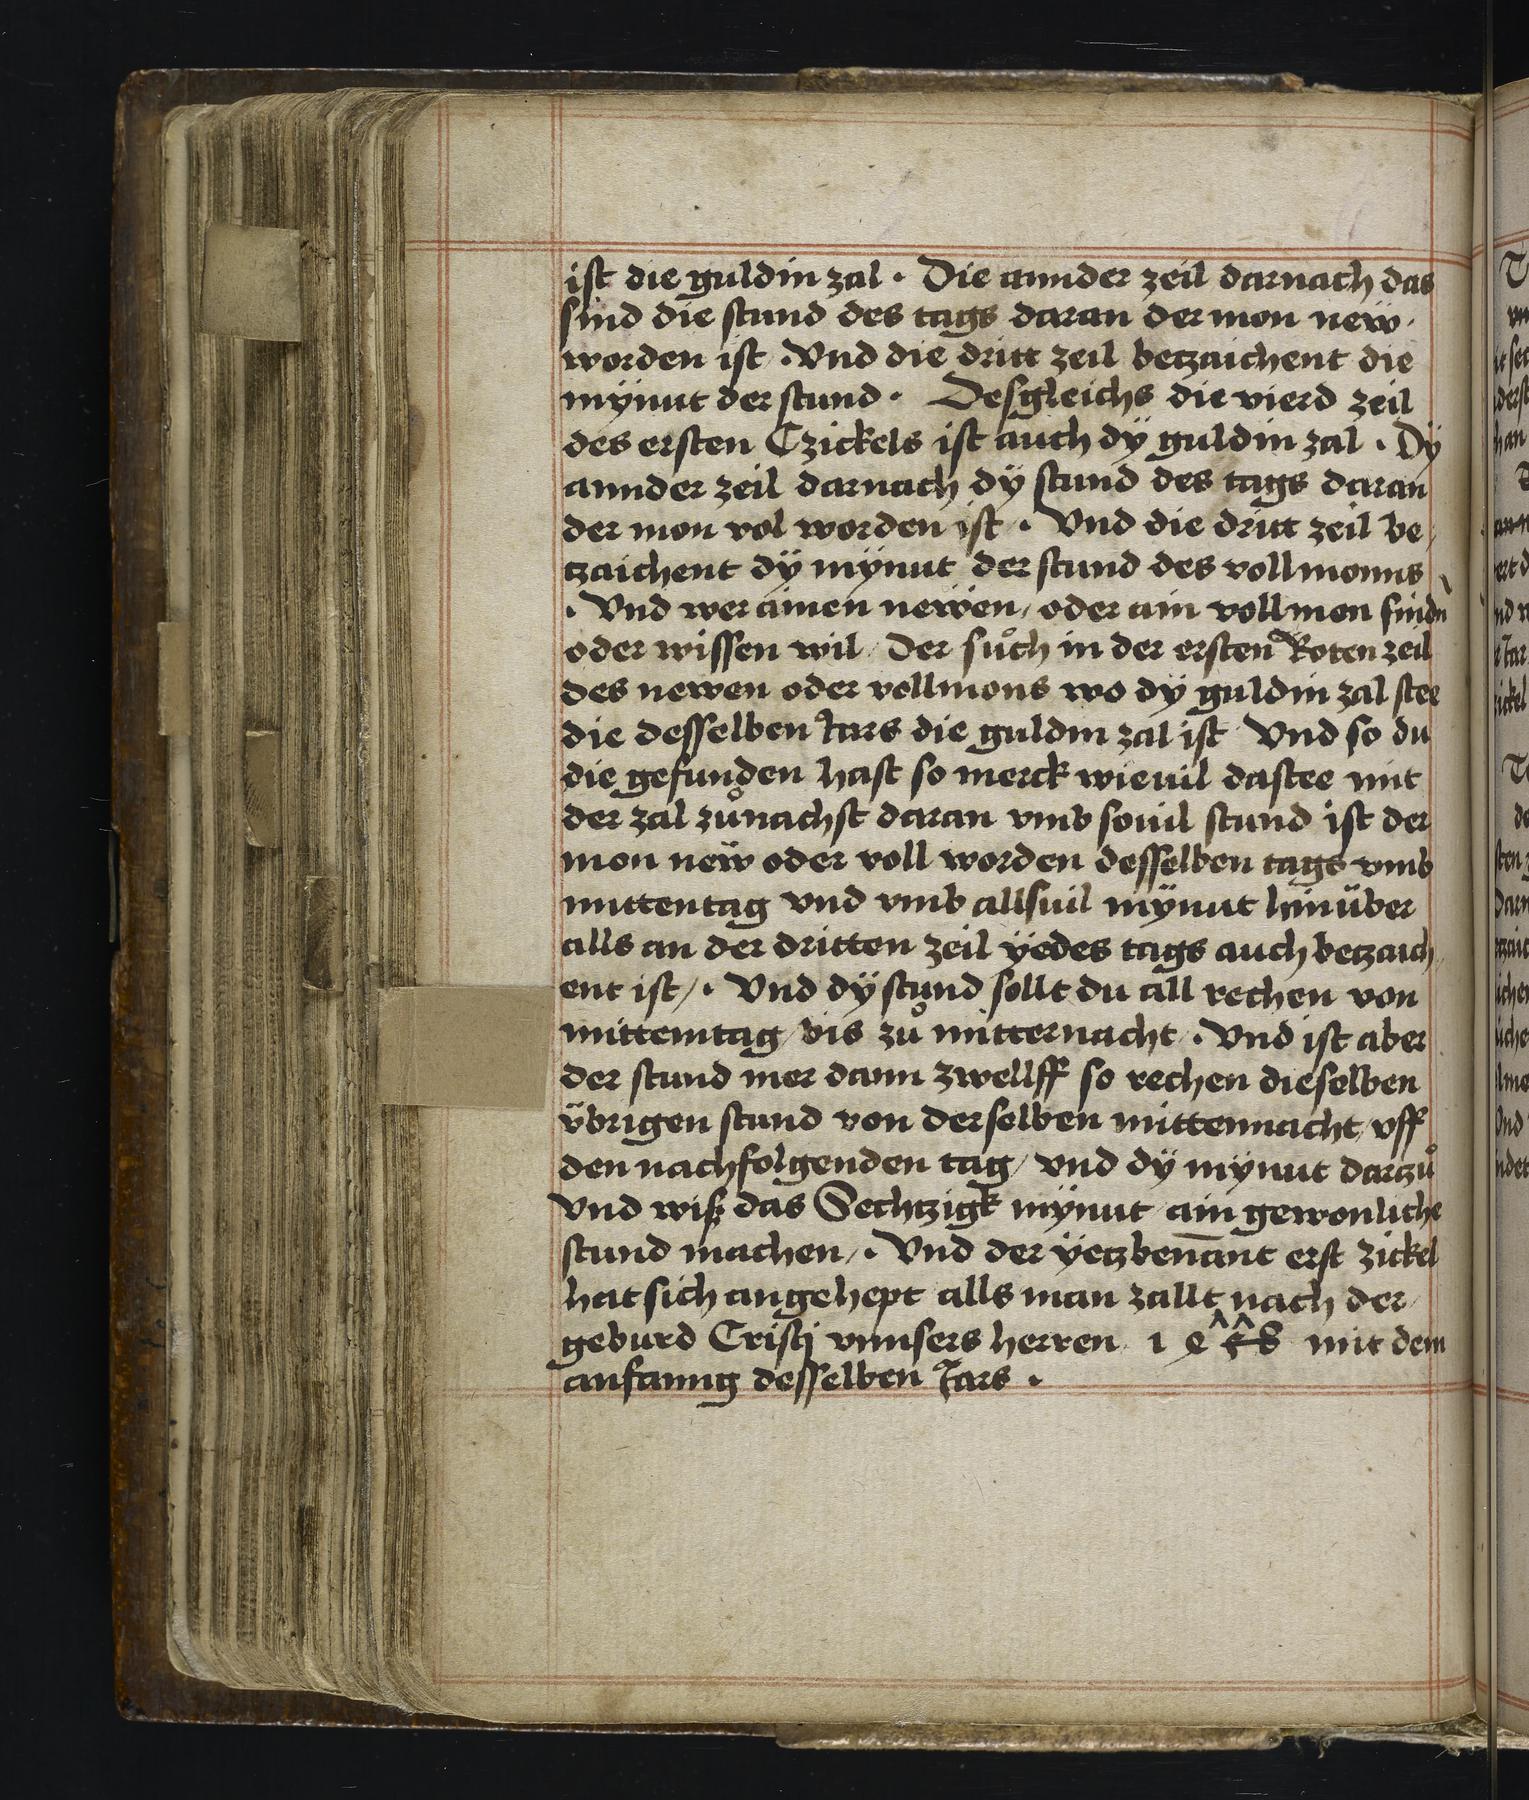 ist die guldin zal · Die annder zeil darnach das
sind die stund des tags daran der mon new ·
worden ist · Vnd die dritt zeil betzaichent die
mÿnut der stund · Desgleichs die vierd zeil
des ersten Czickels ist auch dÿ guldin zal · Dÿ
annder zeil darnach dÿ stund des tags daran
der mon vol worden ist · Vnd die dritt zeil be
tzaichent dÿ mÿnut der stund des vollmonns
· Vnd wer ainen newen / oder ain vollmon findn
oder wissen wil / Der sůch in der ersten Roten zeil
des newen oder vollmons wo dÿ guldin zal stee
die desselben Jars die guldin zal ist Vnd so du
die gefunden hast so merck wieuil dastee mit
der zal zůnachst daran vmb souil stund ist der
mon new̎ oder voll worden desselben tags vmb
mittentag vnd vmb allsuil mÿnut hinüber
alls an der dritten zeil ÿedes tags auch betzaich
ent ist / · Vnd dÿ stund sollt du all rechen von
mittemtag / bis zů mitternacht · Vnd ist aber
der stund mer dann zwellff so rechen dieselben
v̈brigen stund von derselben mittennacht / vff
den nachfolgenden tag / vnd dÿ mÿnut dartzů
Vnd wiß das Sechtzigk mÿnut ain gewonliche
stund machen / · Vnd der ÿetzbenānt erst zickel
hat sich angehept alls man zallt nach der
geburd Cristj vnnsers herren 1 mit dem
anfanng desselben Jars ·